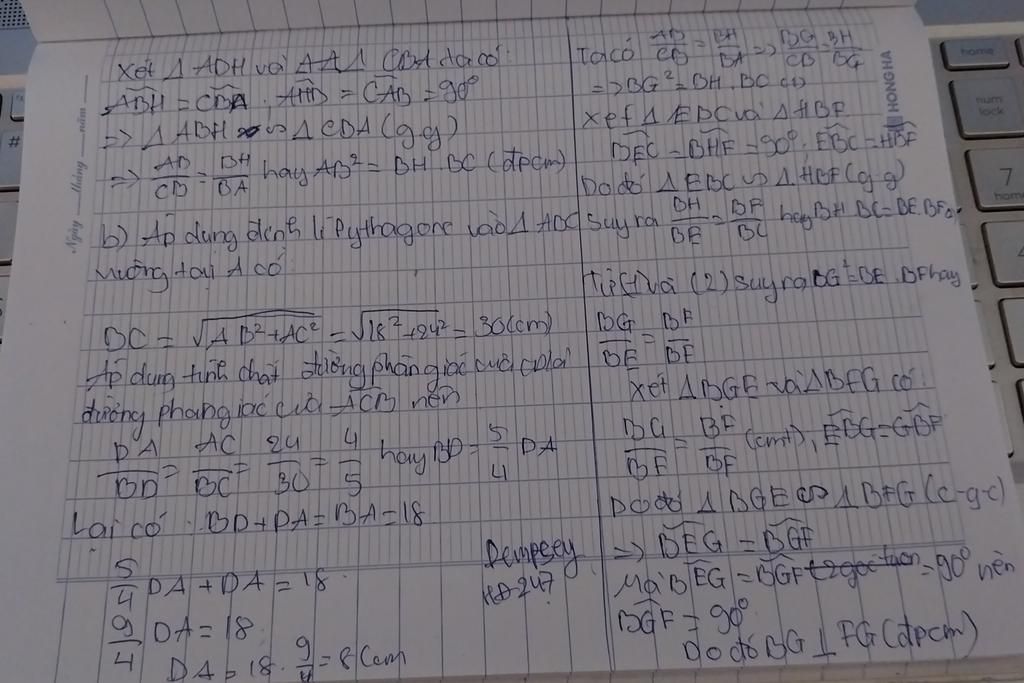 Xét Δ ABH và Δ CBA ta có:
ABH = CBA . AHB = CAB = 90°
=> Δ ABH ∽ Δ CBA (g.g)
=> AB/CB = BH/BA hay AB² = BH . BC (đpcm)
b) Áp dụng định lí Pythagore vào Δ ABC
vuông tại A có:
BC = √AB²+AC² = √18²+24² = 30(cm)
Áp dụng tính chất đường phân giác của CD là
đường phân giác của ACB nên
DA/BD = AC/BC = 24/30 = 4/5 hay BD = 5/4 DA
Lại có : BD + DA = BA = 18
5/4 DA + DA = 18
9/4 DA = 18
DA = 18 . 9/4 = 8(cm
Dempsey
HD-247
Ta có AB/CB = BH/BA => BG/CB = BH/BG
=> BG² = BH . BC (1)
Xét Δ EBC và Δ HBF
BEC = BHF = 90° . EBC = HBF
Do đó Δ EBC ∽ Δ HBF (g.g)
Suy ra BH/BE = BF/BC hay BH . BC = BE . BF
Từ (1) và (2) suy ra BG² = BE . BF hay
BG/BE = BF/BF
Xét Δ BGE và Δ BFG có:
BG/BF = BF/BF (cmt), EBG = GBF
Do đó Δ BGE ∽ Δ BFG (c-g-c)
=> BEG = BGF
Mà BEG = BGF = 90° nên
BGF = 90°
Do đó BG ⊥ FG (đpcm)
Ngày tháng năm
HONG HA
home
num
lock
7
home
#